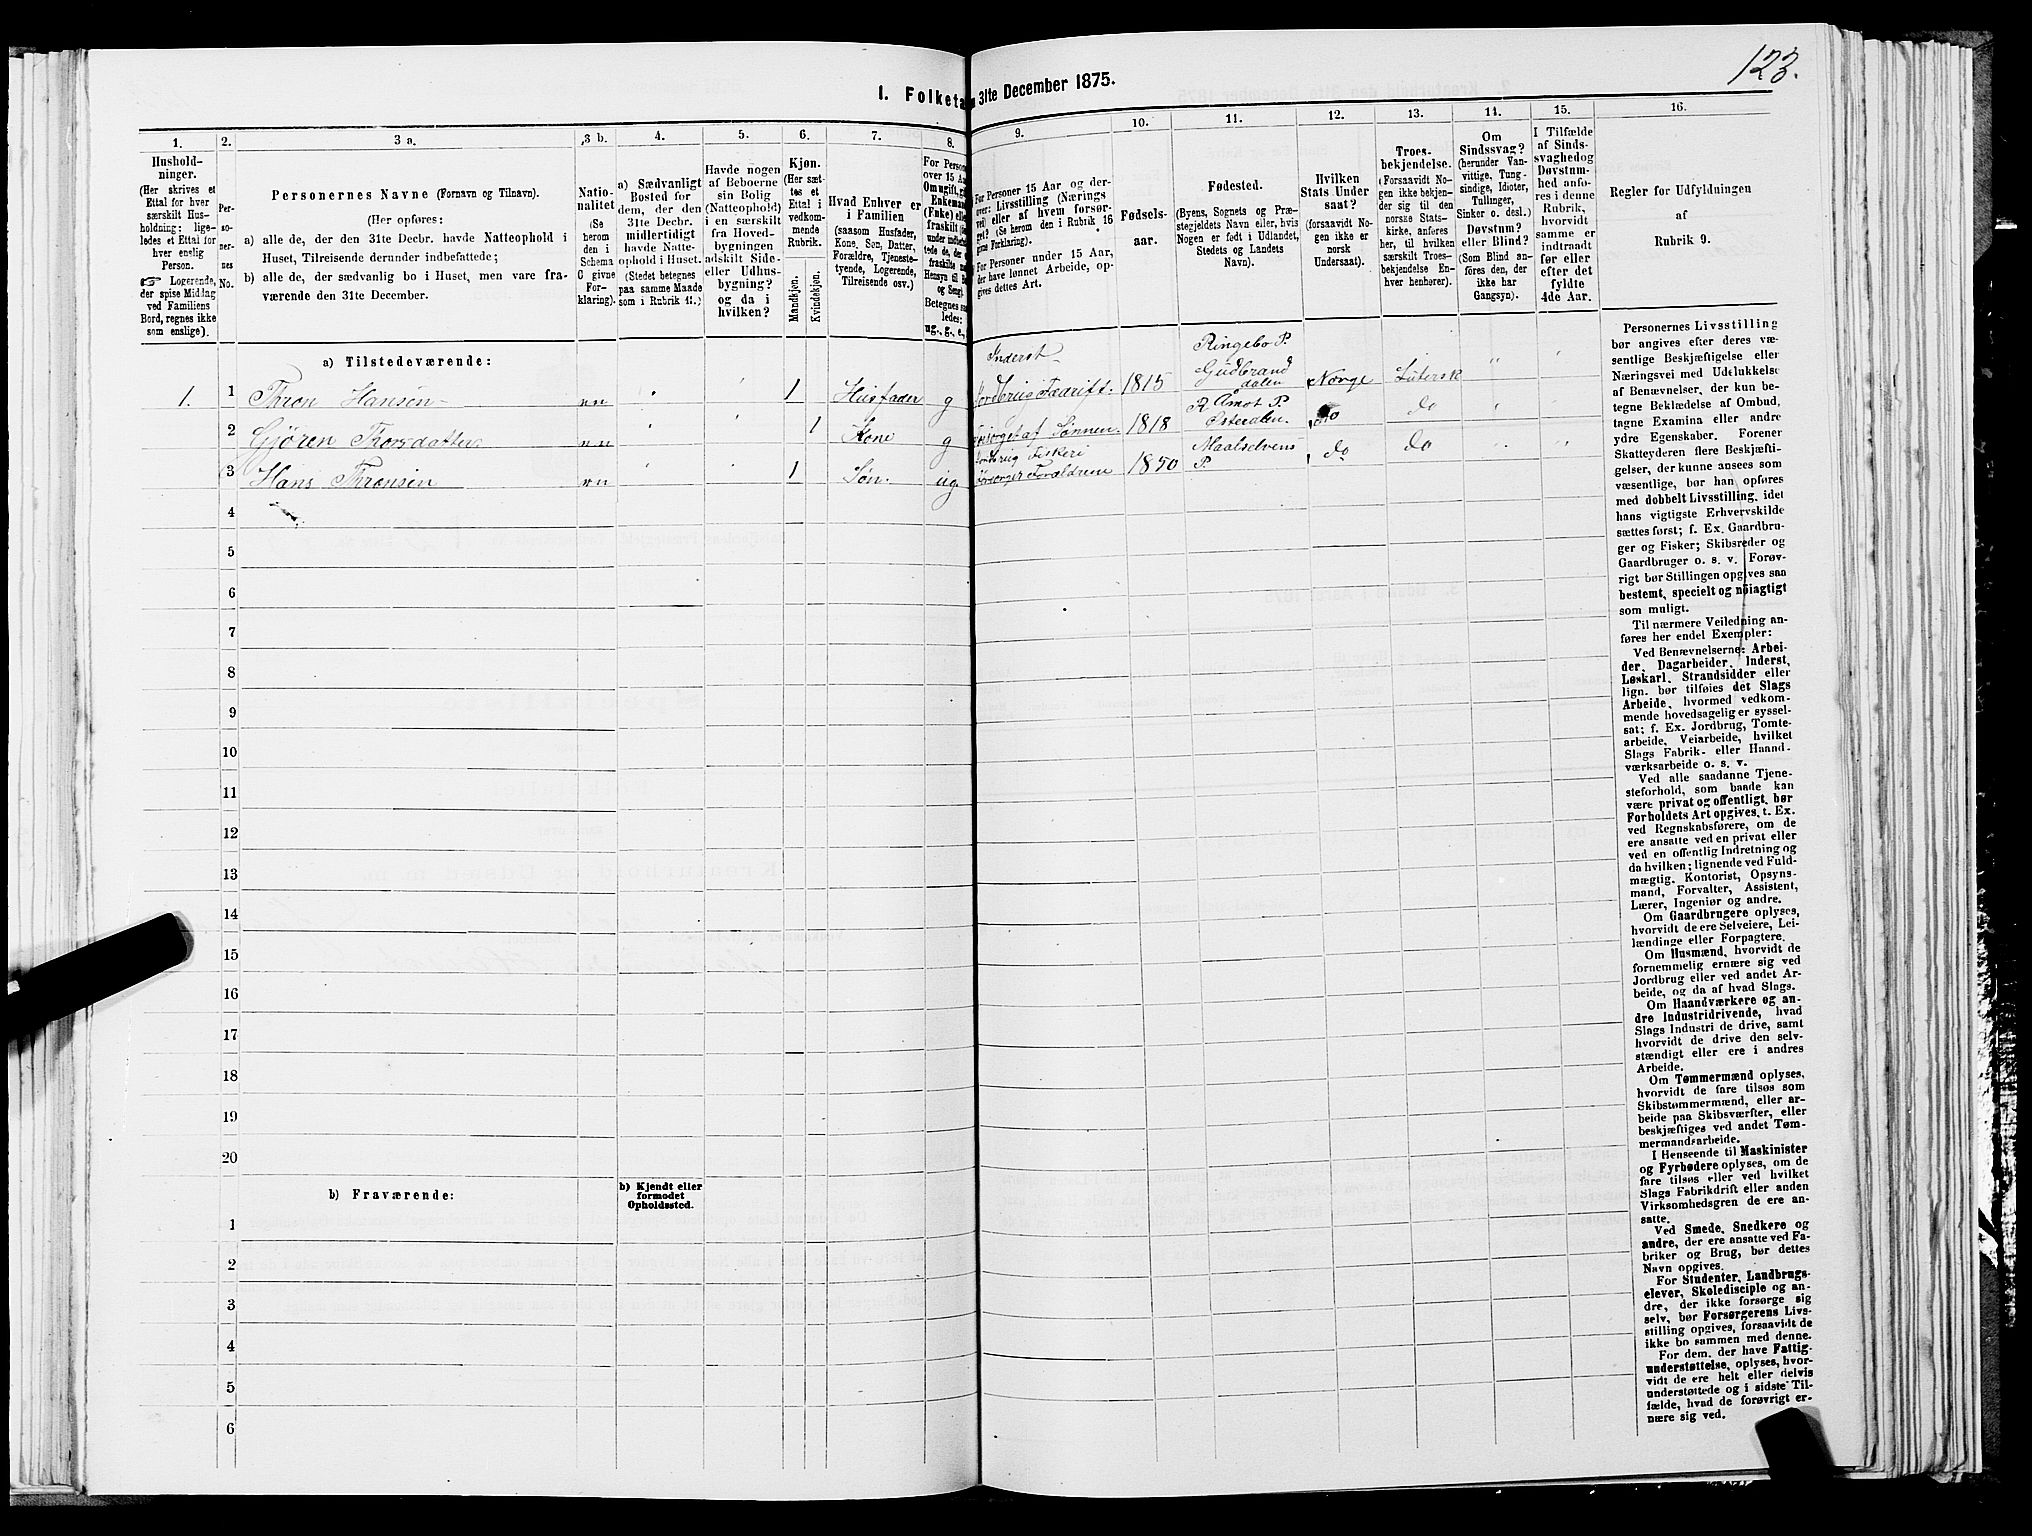 123.
I. Folketæ 31te December 1875.
1.
Hushold-
ninger.
(Her skrives et
Ettal for hver
særskilt Hus-
holdning; lige-
ledes et Ettal for
hver enslig
Person.
☞ Logerende,
der spise Middag
ved Familiens
Bord, regnes ikke
som enslige).
2.
Per-
soner-
nes
No.
3 a.
Personernes Navne (Fornavn og Tilnavn).
(Her opføres:
a) alle de, der den 31te Decbr. havde Natteophold i
Huset, Tilreisende derunder indbefattede;
b) alle de, der sædvanlig bo i Huset, men vare fra-
værende den 31te December.
3 b.
Natio-
nalitet
(Se
herom
den i
Schema
C givne
For-
klaring).
4.
a) Sædvanligt
Bosted for
dem, der den
31te Decbr.
midlertidigt
havde Natte-
ophold i Huset.
(Stedet betegnes
paa samme Maade
som i Rubrik 11.)
5.
Havde nogen
af Beboerne
sin Bolig
(Natteophold)
i en særskilt
fra Hoved-
bygningen
adskilt Side-
eller Udhus-
bygning?
og da i
hvilken?
6.
Kjøn.
(Her sæt-
tes et
Ettal i
vedkom-
mende
Rubrik.
Mandkjøn.
Kvindekjøn.
7.
Hvad Enhver er
i Familien
(saasom Husfader,
Kone, Søn, Datter,
Forældre, Tjeneste-
tyende, Logerende,
Tilreisende osv.)
8.
For Person
over 15 Aa
Om ugift, gi
Enkeman
(Enke) elle
fraskilt
Betegnes saa
ledes:
ug., g., e.,
9.
For Personer 15 Aar og der-
over: Livsstilling (Nærings
vei) eller af hvem forsør-
get? (Se herom den i Rubrik 16
givne Forklaring).
For Personer under 15 Aar,
der have lønnet Arbeide, op-
gives dettes Art.
10.
Fødsels-
aar.
11.
Fødested.
(Byens, Sognets og Præ-
stegjeldets Navn eller, hvis
Nogen er født i Udlandet,
Stedets og Landets
Navn).
12.
Hvilken
Stats Under
saat?
(forsaavidt No-
gen ikke er
norsk
Undersaat).
13.
Troes-
bekjendelse.
(Forsaavidt No-
gen ikke bekjen-
der sig til den
norske Stats-
kirke, anføres
her, til hvilken
Troes-
bekjendelse En-
hver henhører).
14.
Om
Sindssvag?
(herunder Van-
vittige, Tung-
sindige, Idioter,
Tullinger,
Sinker o. desl.)
Døvstum?
eller Blind?
(Som Blind an-
føres den, der
ikke har
Gangsyn).
15.
I Tilfælde
af Sinds-
svaghed og
Døvstum-
hed anfø-
res i denne
Rubrik,
hvorvidt
samme er
indtraadt
før eller
efter det
fyldte
4de Aar.
16.
Regler for Udfyldningen
af
Rubrik 9.
a) Tilstedeværende:
1. 1 Thron Hansen nn 1 Husfader g Inderst Jordbrug Faadrift. 1815 Ringebo P. Gudbrand dalen Norge Lutersk
2 Gjören Thorsdatter nn 1 Kone g forsørget af Sønnen. 1818 R Åmot P. Østerdalen. do do
3 Hans Thronsen nn 1 Søn. ug Jordbrug Fiskeri forsørger Forældrene 1850 Maalselvens P. do do
4
5
6
7
8
9
10
11
12
13
14
15
16
17
18
19
20
b) Fraværende:
b) Kjendt eller
formodet
Opholdssted.
1
2
3
4
5
6
Personernes Livsstilling
bør angives efter deres væ-
sentlige Beskjæftigelse eller
Næringsvei med Udelukkelse
af Benævnelser, der kun be-
tegne Beklædelse af Ombud,
tagne Examina eller andre
ydre Egenskaber. Forener
Skatteyderen flere Beskjæfti-
gelser, der kunne ansees som
væsentlige, bør han opføres
med dobbelt Livsstilling, idet
hans vigtigste Erhvervskilde
sættes først; f. Ex. Gaardbru-
ger og Fisker; Skibsreder og
Gaardbruger o. s. v. Forøv-
rigt bør Stillingen opgives saa
bestemt, specielt og nøiagtigt
som muligt.
Til nærmere Veiledning an-
føres her endel Exempler:
Ved Benævnelserne: Arbei-
der, Dagarbeider, Inderst,
Løskarl, Strandsidder eller
lign. bør tilføies det Slags
Arbeide, hvormed vedkom-
mende hovedsagelig er syssel-
sat; f. Ex. Jordbrug, Tomte-
arbeide, Veiarbeide, hvilket
Slags Fabrik- eller Haand-
værksarbeide o. s. v.
Ved alle saadanne Tjene-
steforhold, som baade kan
være privat og offentligt, bør
Forholdets Art opgives, t. Ex.
ved Regnskabsførere, om de
ere ansatte ved en privat eller
ved en offentlig Indretning og
da hvilken; lignende ved Fuld-
mægtig, Kontorist, Opsyns-
mand, Forvalter, Assistent,
Lærer, Ingeniør og andre.
Om Gaardbrugere oplyses,
hvorvidt de ere Selveiere, Lei-
lændinge eller Forpagtere.
Om Husmænd, hvorvidt de
fornemmelig ernære sig ved
Jordbrug eller ved andet Ar-
beide, og da af hvad Slags.
Om Haandværkere og an-
dre Industridrivende, hvad
Slags Industri de drive, samt
hvorvidt de drive den selv-
stændigt eller ere i andres
Arbeide.
Om Tømmermænd oplyses,
hvorvidt de fare tilsøs som
Skibstømmermænd, eller ar-
beide paa Skibsværfter, eller
beskjæftiges ved andet Tøm-
mermandsarbeide.
I Henseende til Maskinister
og Fyrbødere oplyses, om de
fare tilsøs eller ved hvilket
Slags Fabrikdrift eller anden
Virksomhedsgren de ere an-
satte.
Ved Smede, Snedkere og
andre, der ere ansatte ved Fa-
briker og Brug, bør dettes
Navn opgives.
For Studenter, Landbrugs-
elever, Skoledisciple og an-
dre, der ikke forsørge sig
selv, bør Forsørgerens Livs-
stilling opgives, forsaavidt de
ikke bo sammen med denne.
For dem, der have Fattig-
understøttelse, oplyses, hvor-
vidt de ere helt eller delvis
understøttede og i sidste Til-
fælde, hvad de forøvrigt er-
nære sig ved.